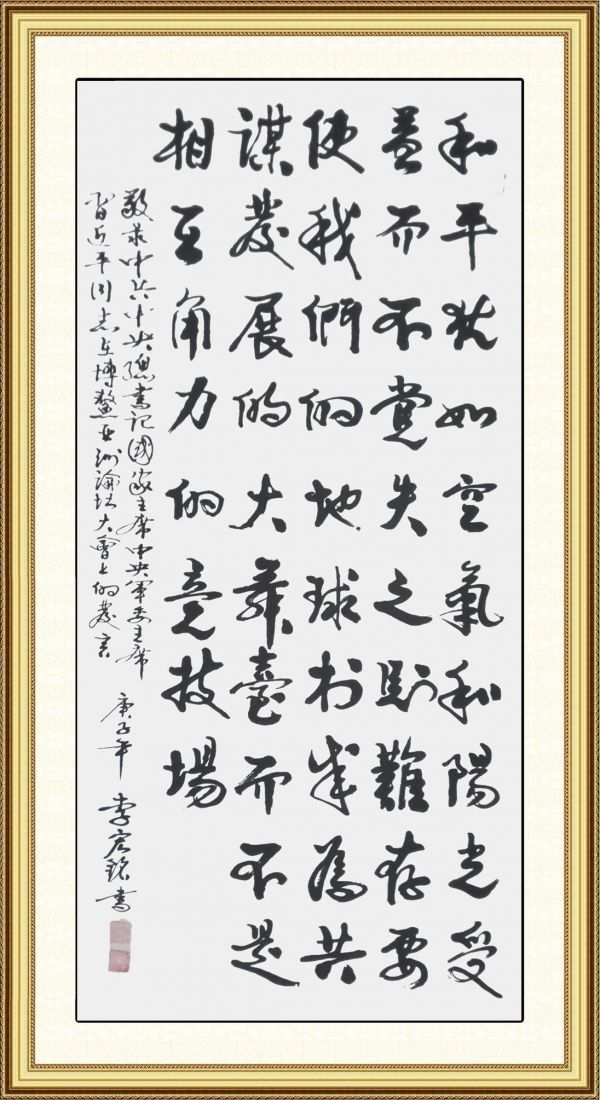 和平犹如空氣和陽光受
益而不覺失之則難存要
使我們的地球村成為共
謀發展的大舞臺而不是
相互角力的竞技場
敬录中共中央總書記國家主席中央軍委主席
習近平同志在博鰲亚洲論坛大會上的發言
庚子年 李宏銘書